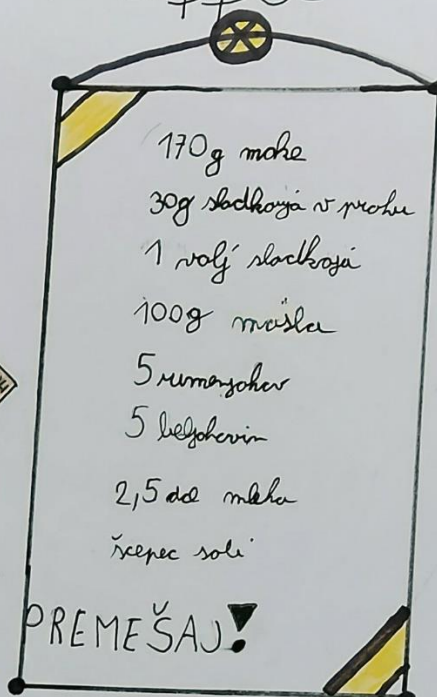 170g moke
30g sladkorja v prahu
1 valj sladkorja
100g masla
5 rumenjakov
5 beljakovin
2,5 dcl mleka
ščepec soli
PREMEŠAJ!